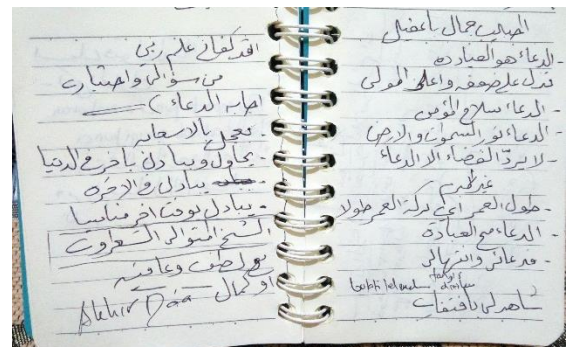 الحبيب جمال باعقيل
- الدعاء هو العبادة
تدل على ضعفه واعلى المولى
- الدعاء سلاح المؤمن
- الدعاء نور السموات والارض
- لا يردّ القضاء الا الدعاء
غير
- طول العمر اي بركة العمر طولا
- الدعاء مخ العبادة
-
شاهد لي بافتقاري
قد كفاني علم ربي
من سؤالي واختياري
اجابة الدعاء
- يعجل بالاستجابة
- يحاول ويبادل باخر في الدنيا
- يبادل في الاخرة
- يبادل بوقت اخر مناسبا
الشيخ المتولي الشعراوي
مع لطف وعافية
او كمال
Akhir Doa